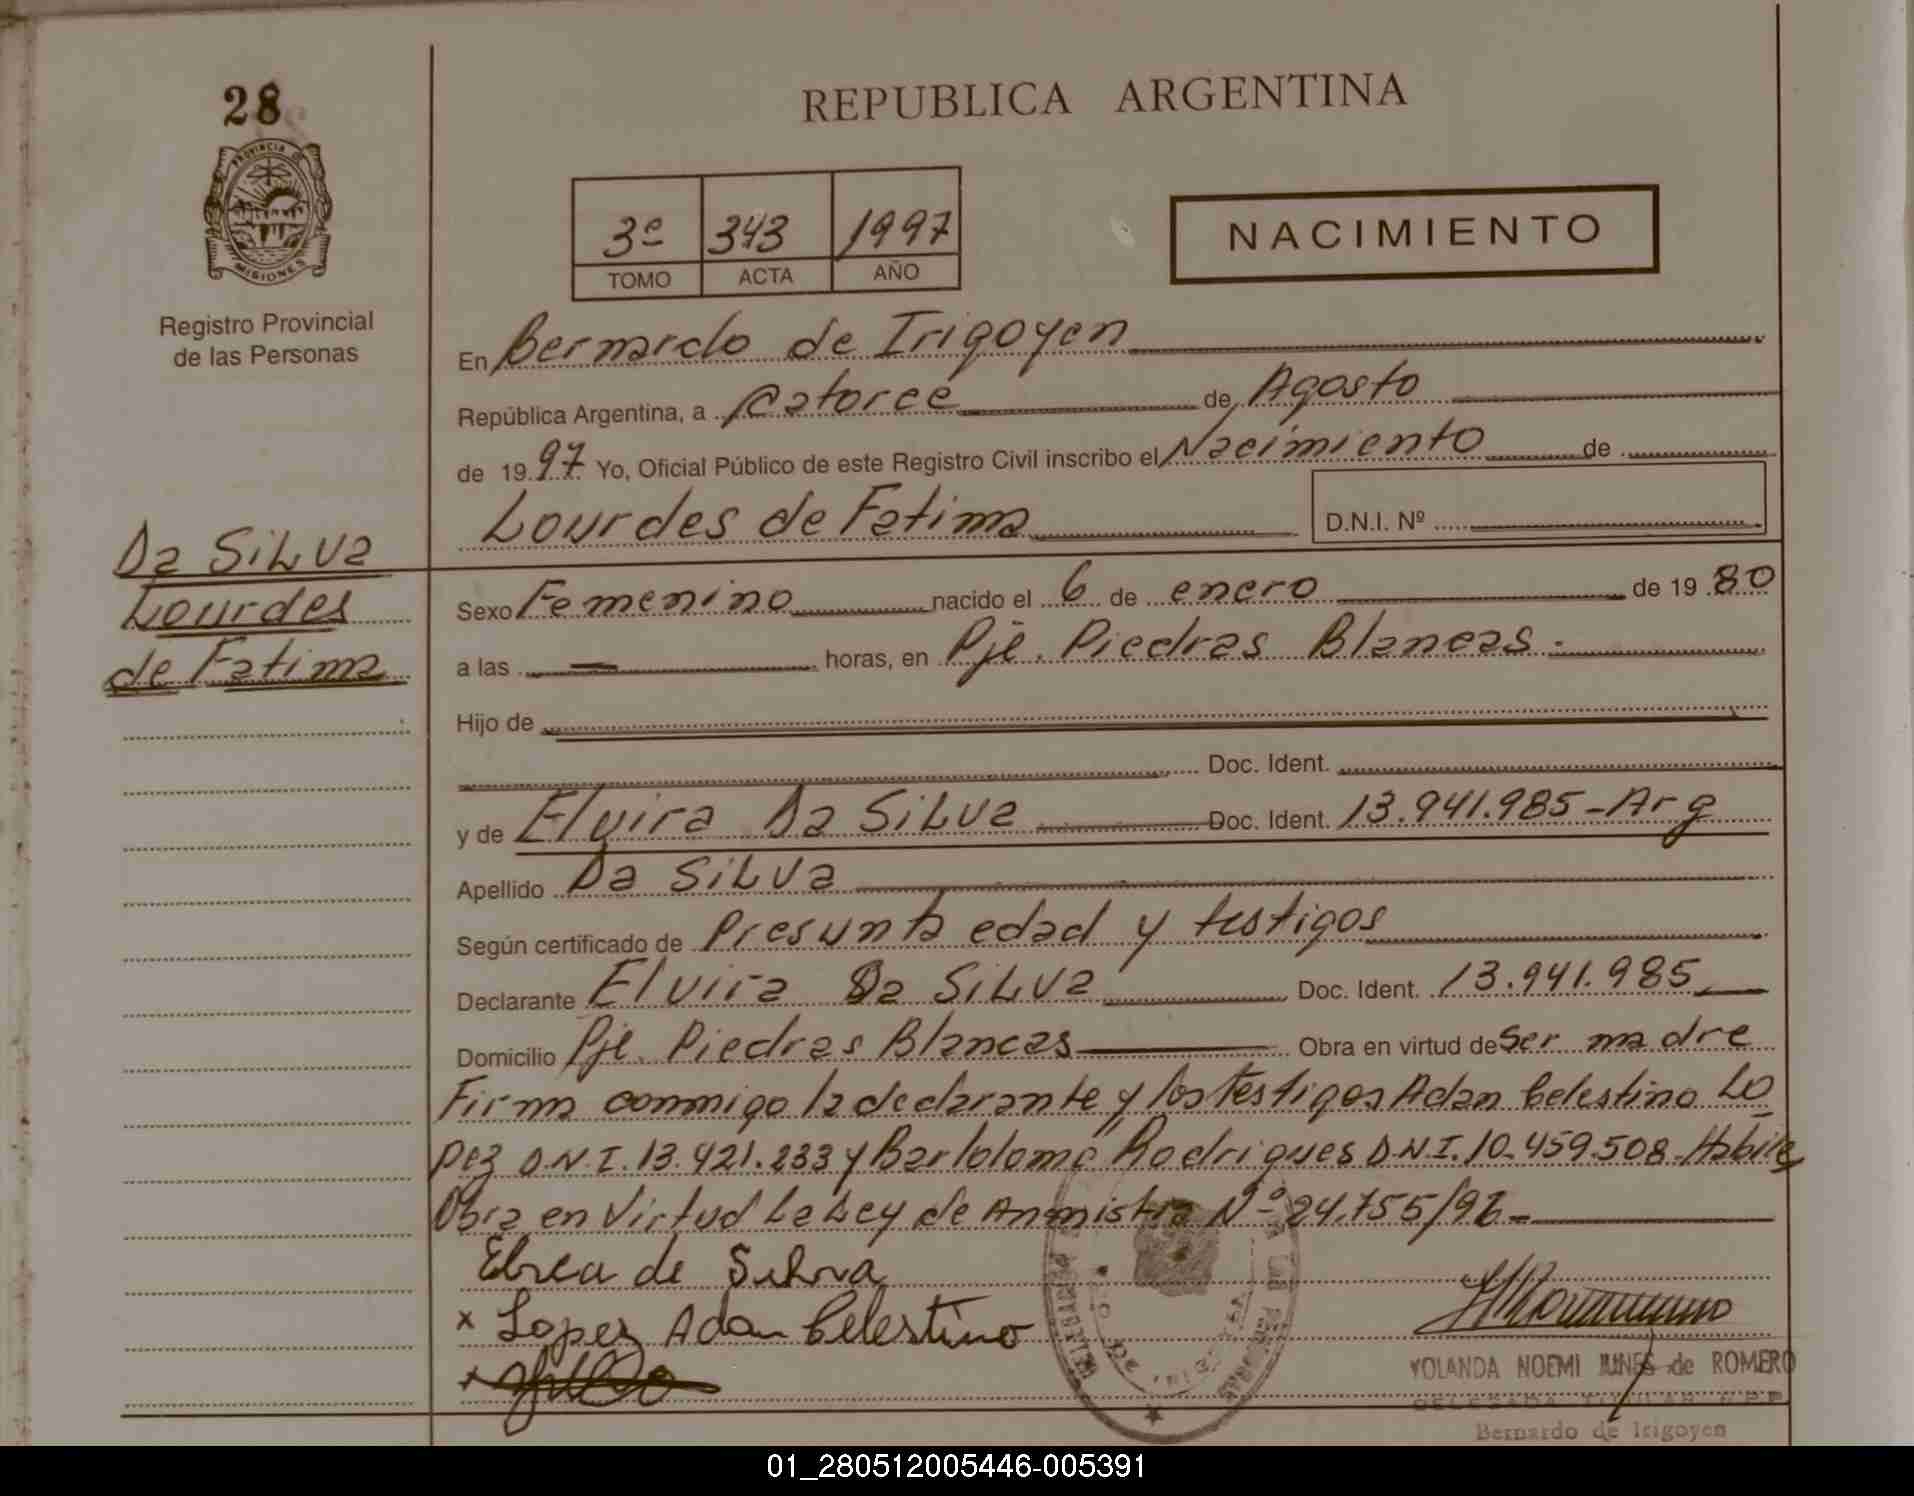 28
PROVINCIA DE
MISIONES
Registro Provincial
de las Personas
REPUBLICA ARGENTINA
3º 343 1997
TOMO ACTA AÑO
NACIMIENTO
En Bernardo de Irigoyen
República Argentina, a Catorce de Agosto
de 1997 Yo, Oficial Público de este Registro Civil inscribo el Nacimiento de
Lourdes de Fatima D.N.I. Nº
Da Silva
Lourdes
de Fatima
Sexo Femenino nacido el 6 de enero de 1980
a las — horas, en Pje. Piedras Blancas.
Hijo de
Doc. Ident.
y de Elvira Da Silva Doc. Ident. 13.941.985-Arg
Apellido Da Silva
Según certificado de Presunta edad y testigos
Declarante Elvira Da Silva Doc. Ident. 13.941.985
Domicilio Pje. Piedras Blancas Obra en virtud de Ser madre
Firma conmigo la declarante y los testigos Adan Celestino Lo
pez D.N.I. 13.421.233 y Bartolomé Rodrigues D.N.I. 10.459.508. Habile
Obra en Virtud La Ley de Anmistia Nº 24.755/96.-
de Silva
x Lopez Adan Celestino
x
YOLANDA NOEMI JUNES de ROMERO
DELEGADA TITULAR R.P.P.
Bernardo de Irigoyen
01_280512005446-005391